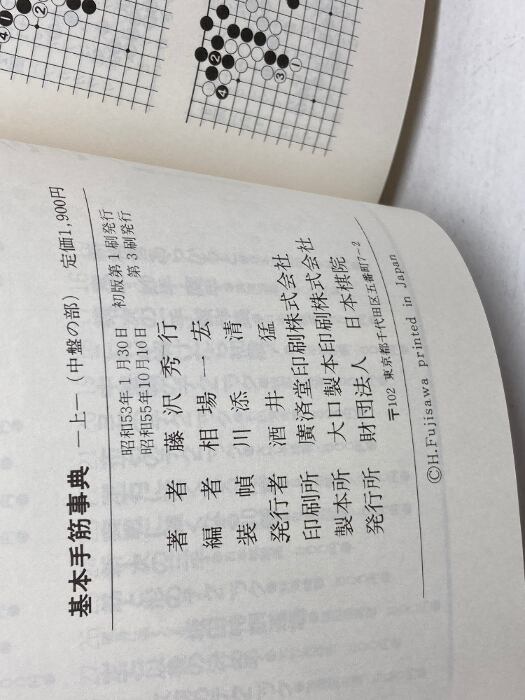 基本手筋事典 ―上―(中盤の部) 定価1,900円
昭和53年1月30日 初版第1刷発行
昭和55年10月10日 第3刷発行
著者 藤沢秀行
編者 相場一宏
装幀 川添清
発行者 酒井猛
印刷所 廣済堂印刷株式会社
製本所 大口製本印刷株式会社
発行所 財団法人 日本棋院
〒102 東京都千代田区五番町7-2
©H.Fujisawa printed in Japan